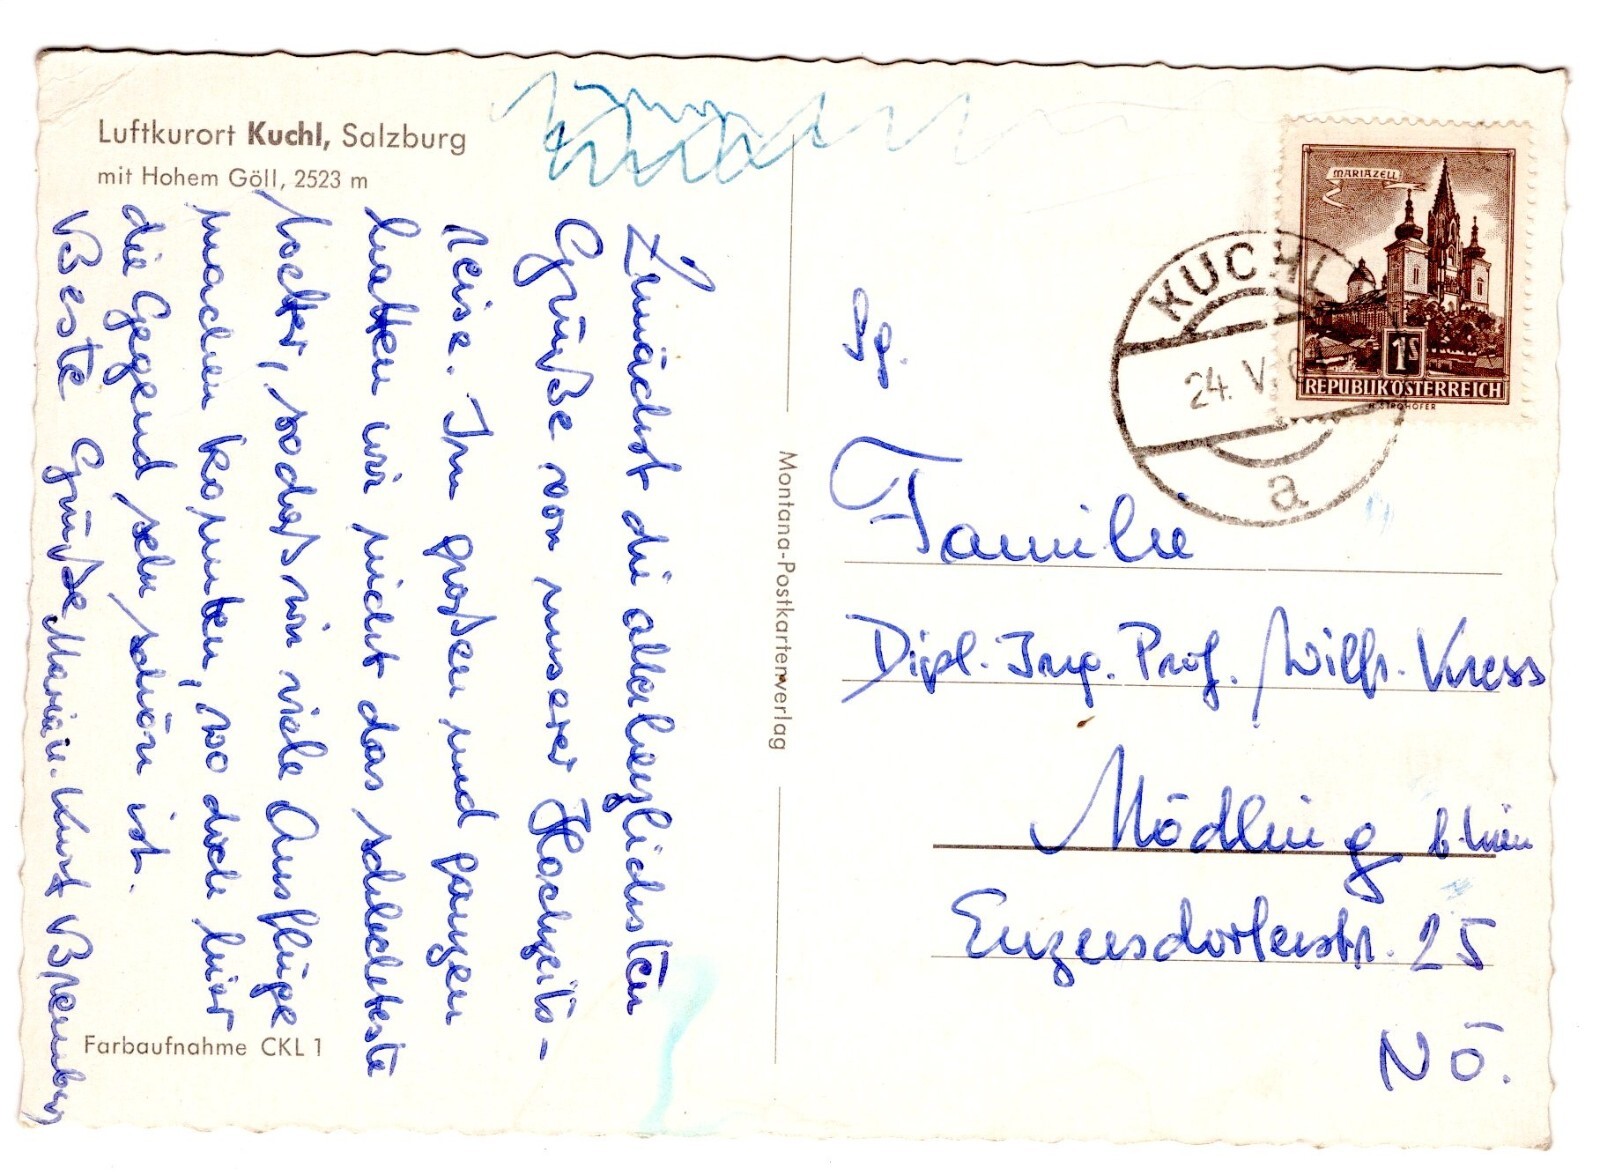 Luftkurort Kuchl, Salzburg
mit Hohem Göll, 2523 m
Zunächst die allerherzlichsten
Grüße von unserer Hochzeits-
reise. Im großen und ganzen
hatten wir nicht das schlechteste
Wetter, sodaß wir viele Ausflüge
machen konnten, wo doch hier
die Gegend sehr schön ist.
Beste Grüße Maria u. Kurt
Farbaufnahme CKL 1
Montana-Postkartenverlag
MARIAZELL
1S
REPUBLIK ÖSTERREICH
KUCHL
24. V.
a
Familie
Dipl. Ing. Prof. Wilfr. Kress
Mödling b. Wien
Enzersdorferstr. 25
NÖ.